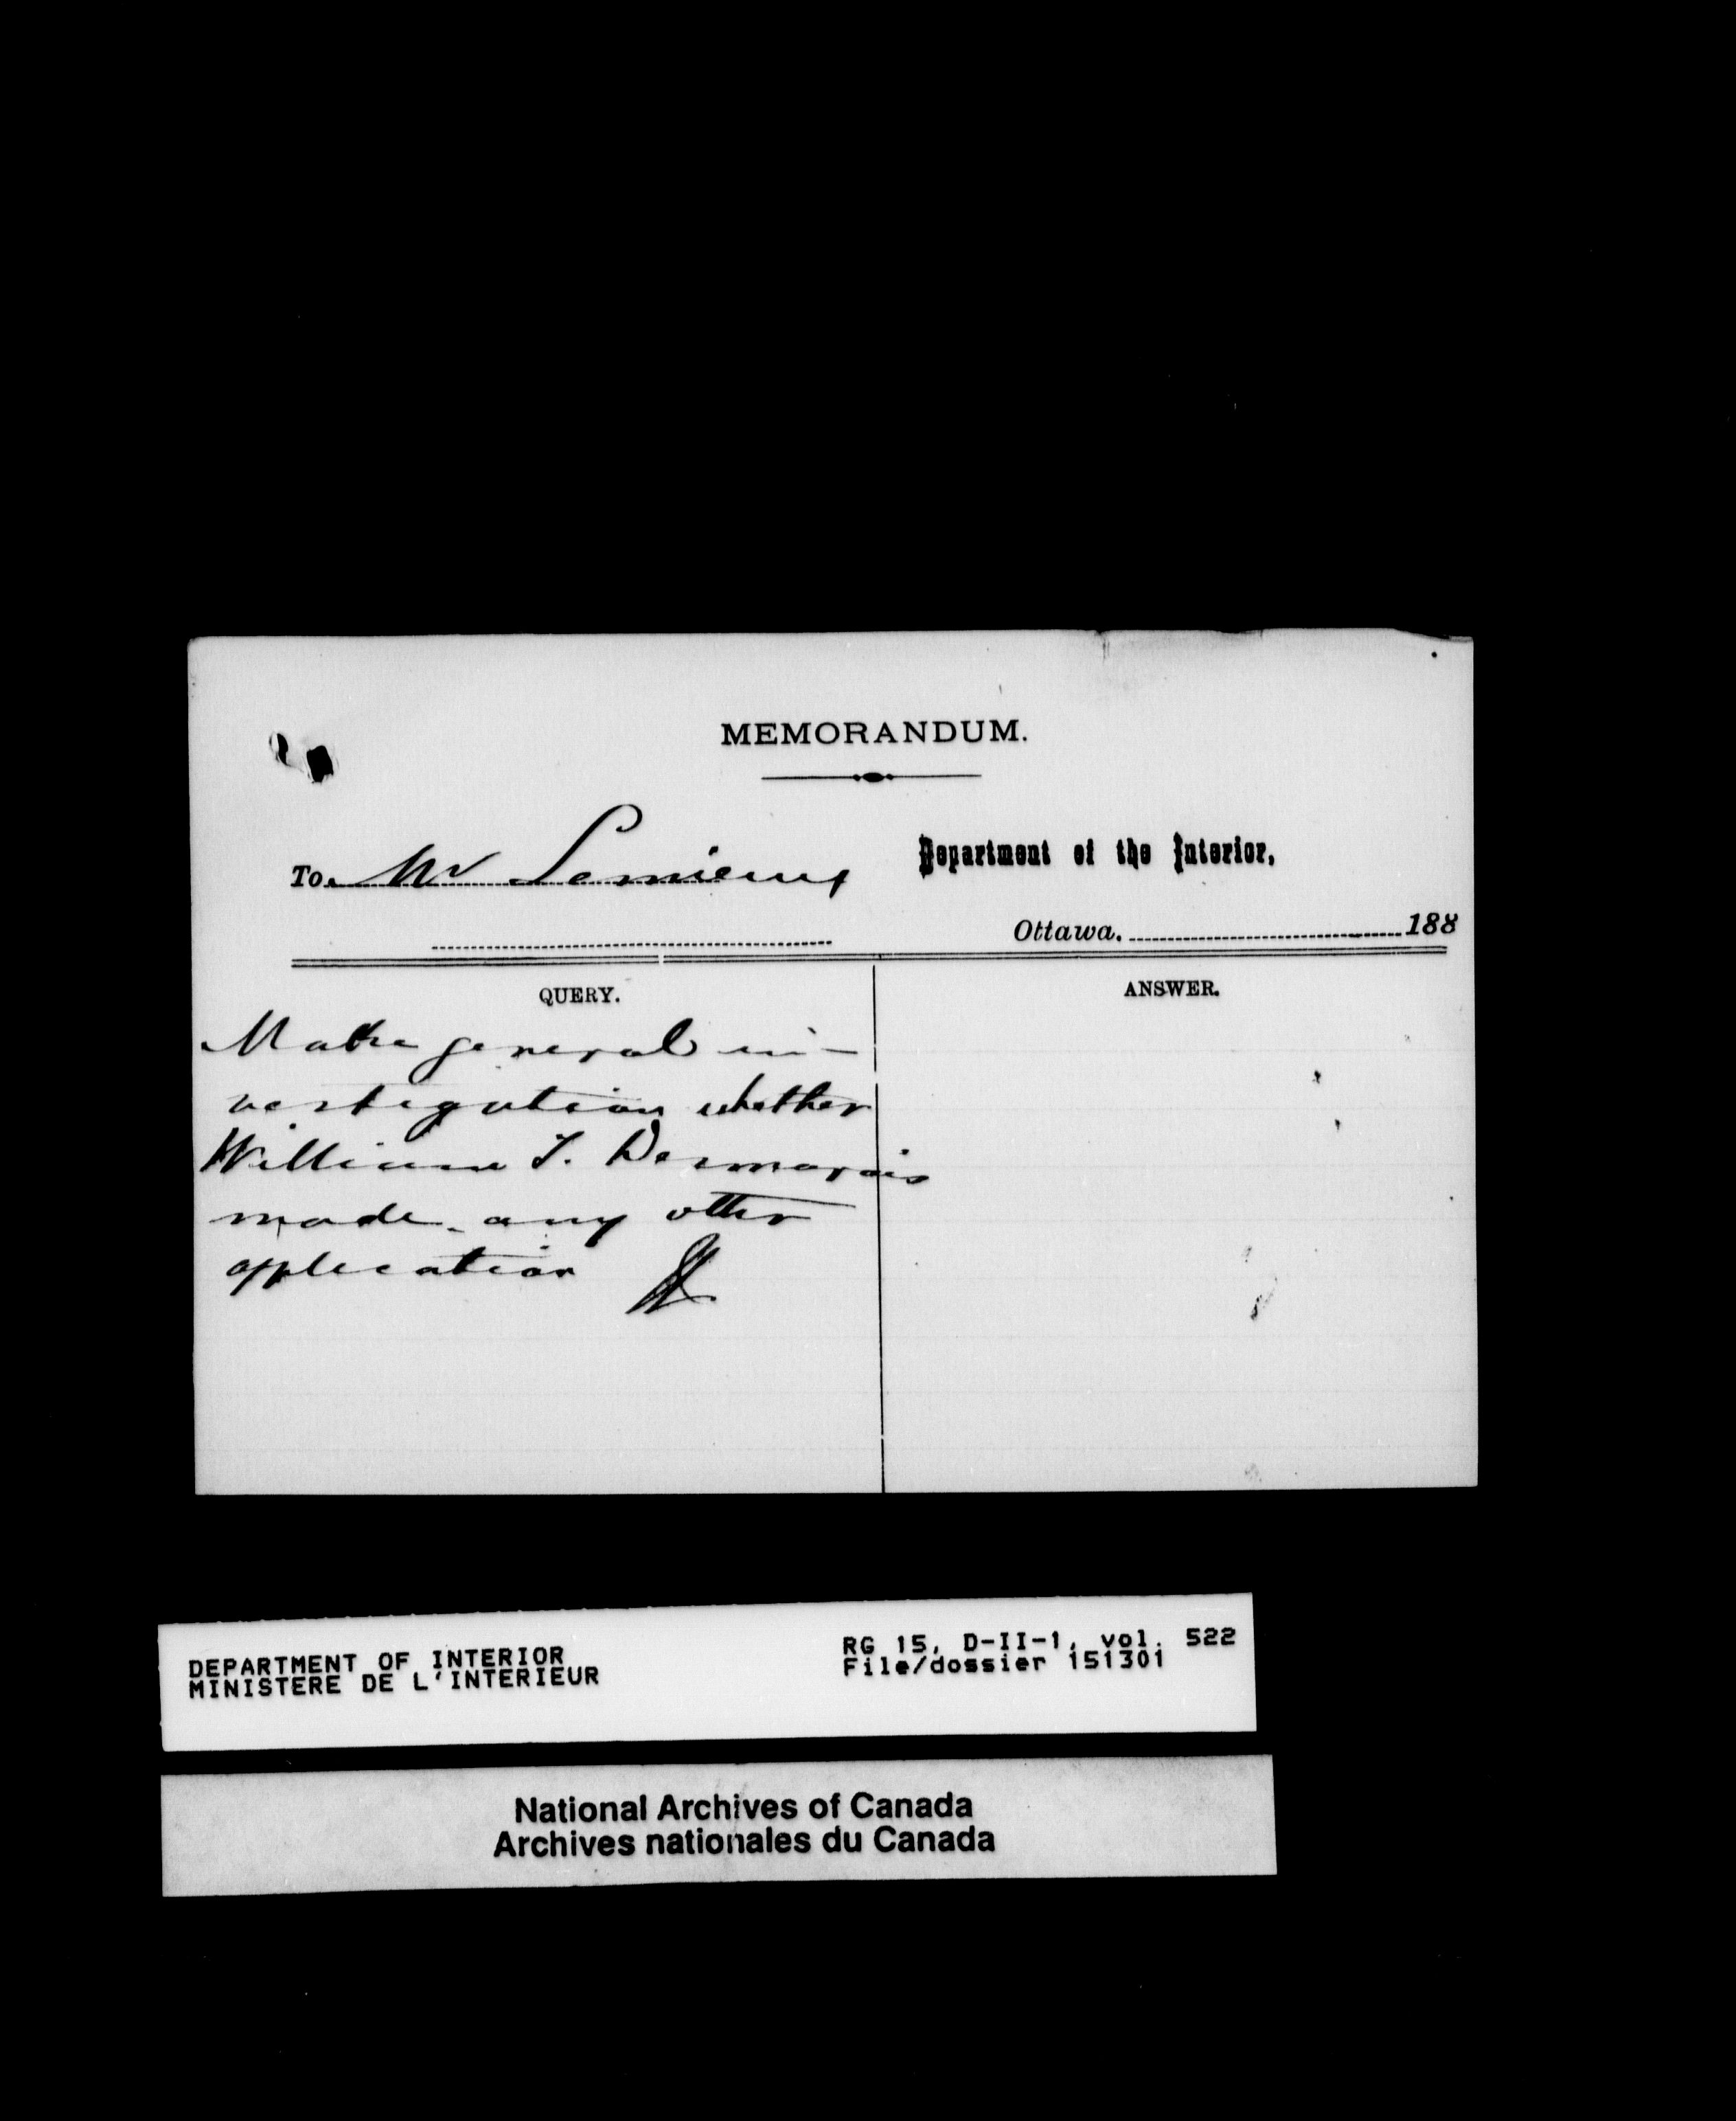 MEMORANDUM.
To Mr Lemieux
Department of the Interior,
Ottawa. 188
QUERY.
Make general in-
vestigation whether
William T. Desmarais
made any other
application
ANSWER.
DEPARTMENT OF INTERIOR
MINISTERE DE L'INTERIEUR
RG 15, D-II-1, vol. 522
File/dossier 151301
National Archives of Canada
Archives nationales du Canada